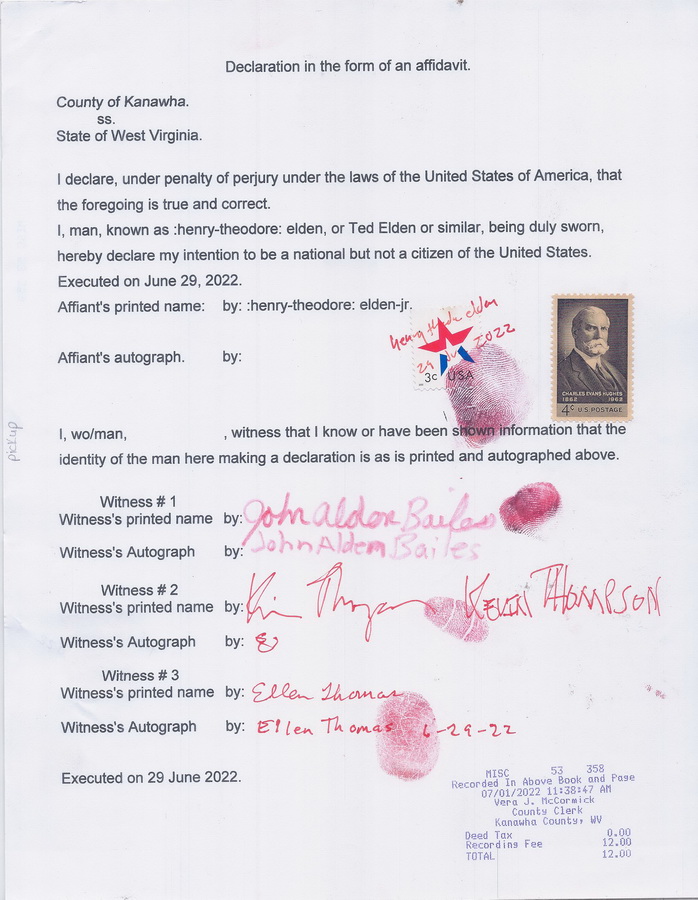 Declaration in the form of an affidavit.
County of Kanawha.
ss.
State of West Virginia.
I declare, under penalty of perjury under the laws of the United States of America, that
the foregoing is true and correct.
I, man, known as :henry-theodore: elden, or Ted Elden or similar, being duly sworn,
hereby declare my intention to be a national but not a citizen of the United States.
Executed on June 29, 2022.
Affiant's printed name: by: :henry-theodore: elden-jr.
elden
29 2022
3c USA
CHARLES EVANS HUGHES
1862 1962
4c U.S. POSTAGE
Affiant's autograph. by:
I, wo/man, , witness that I know or have been shown information that the
identity of the man here making a declaration is as is printed and autographed above.
pickup
Witness # 1
Witness's printed name by: John Aldon Bailes
Witness's Autograph by: John Aldem Bailes
Witness # 2
Witness's printed name by: KEVIN THOMPSON
Witness's Autograph by:
Witness # 3
Witness's printed name by: Ellen Thomas
Witness's Autograph by: Ellen Thomas 6-29-22
Executed on 29 June 2022.
MISC 53 358
Recorded In Above Book and Page
07/01/2022 11:38:47 AM
Vera J. McCormick
County Clerk
Kanawha County, WV
Deed Tax 0.00
Recording Fee 12.00
TOTAL 12.00